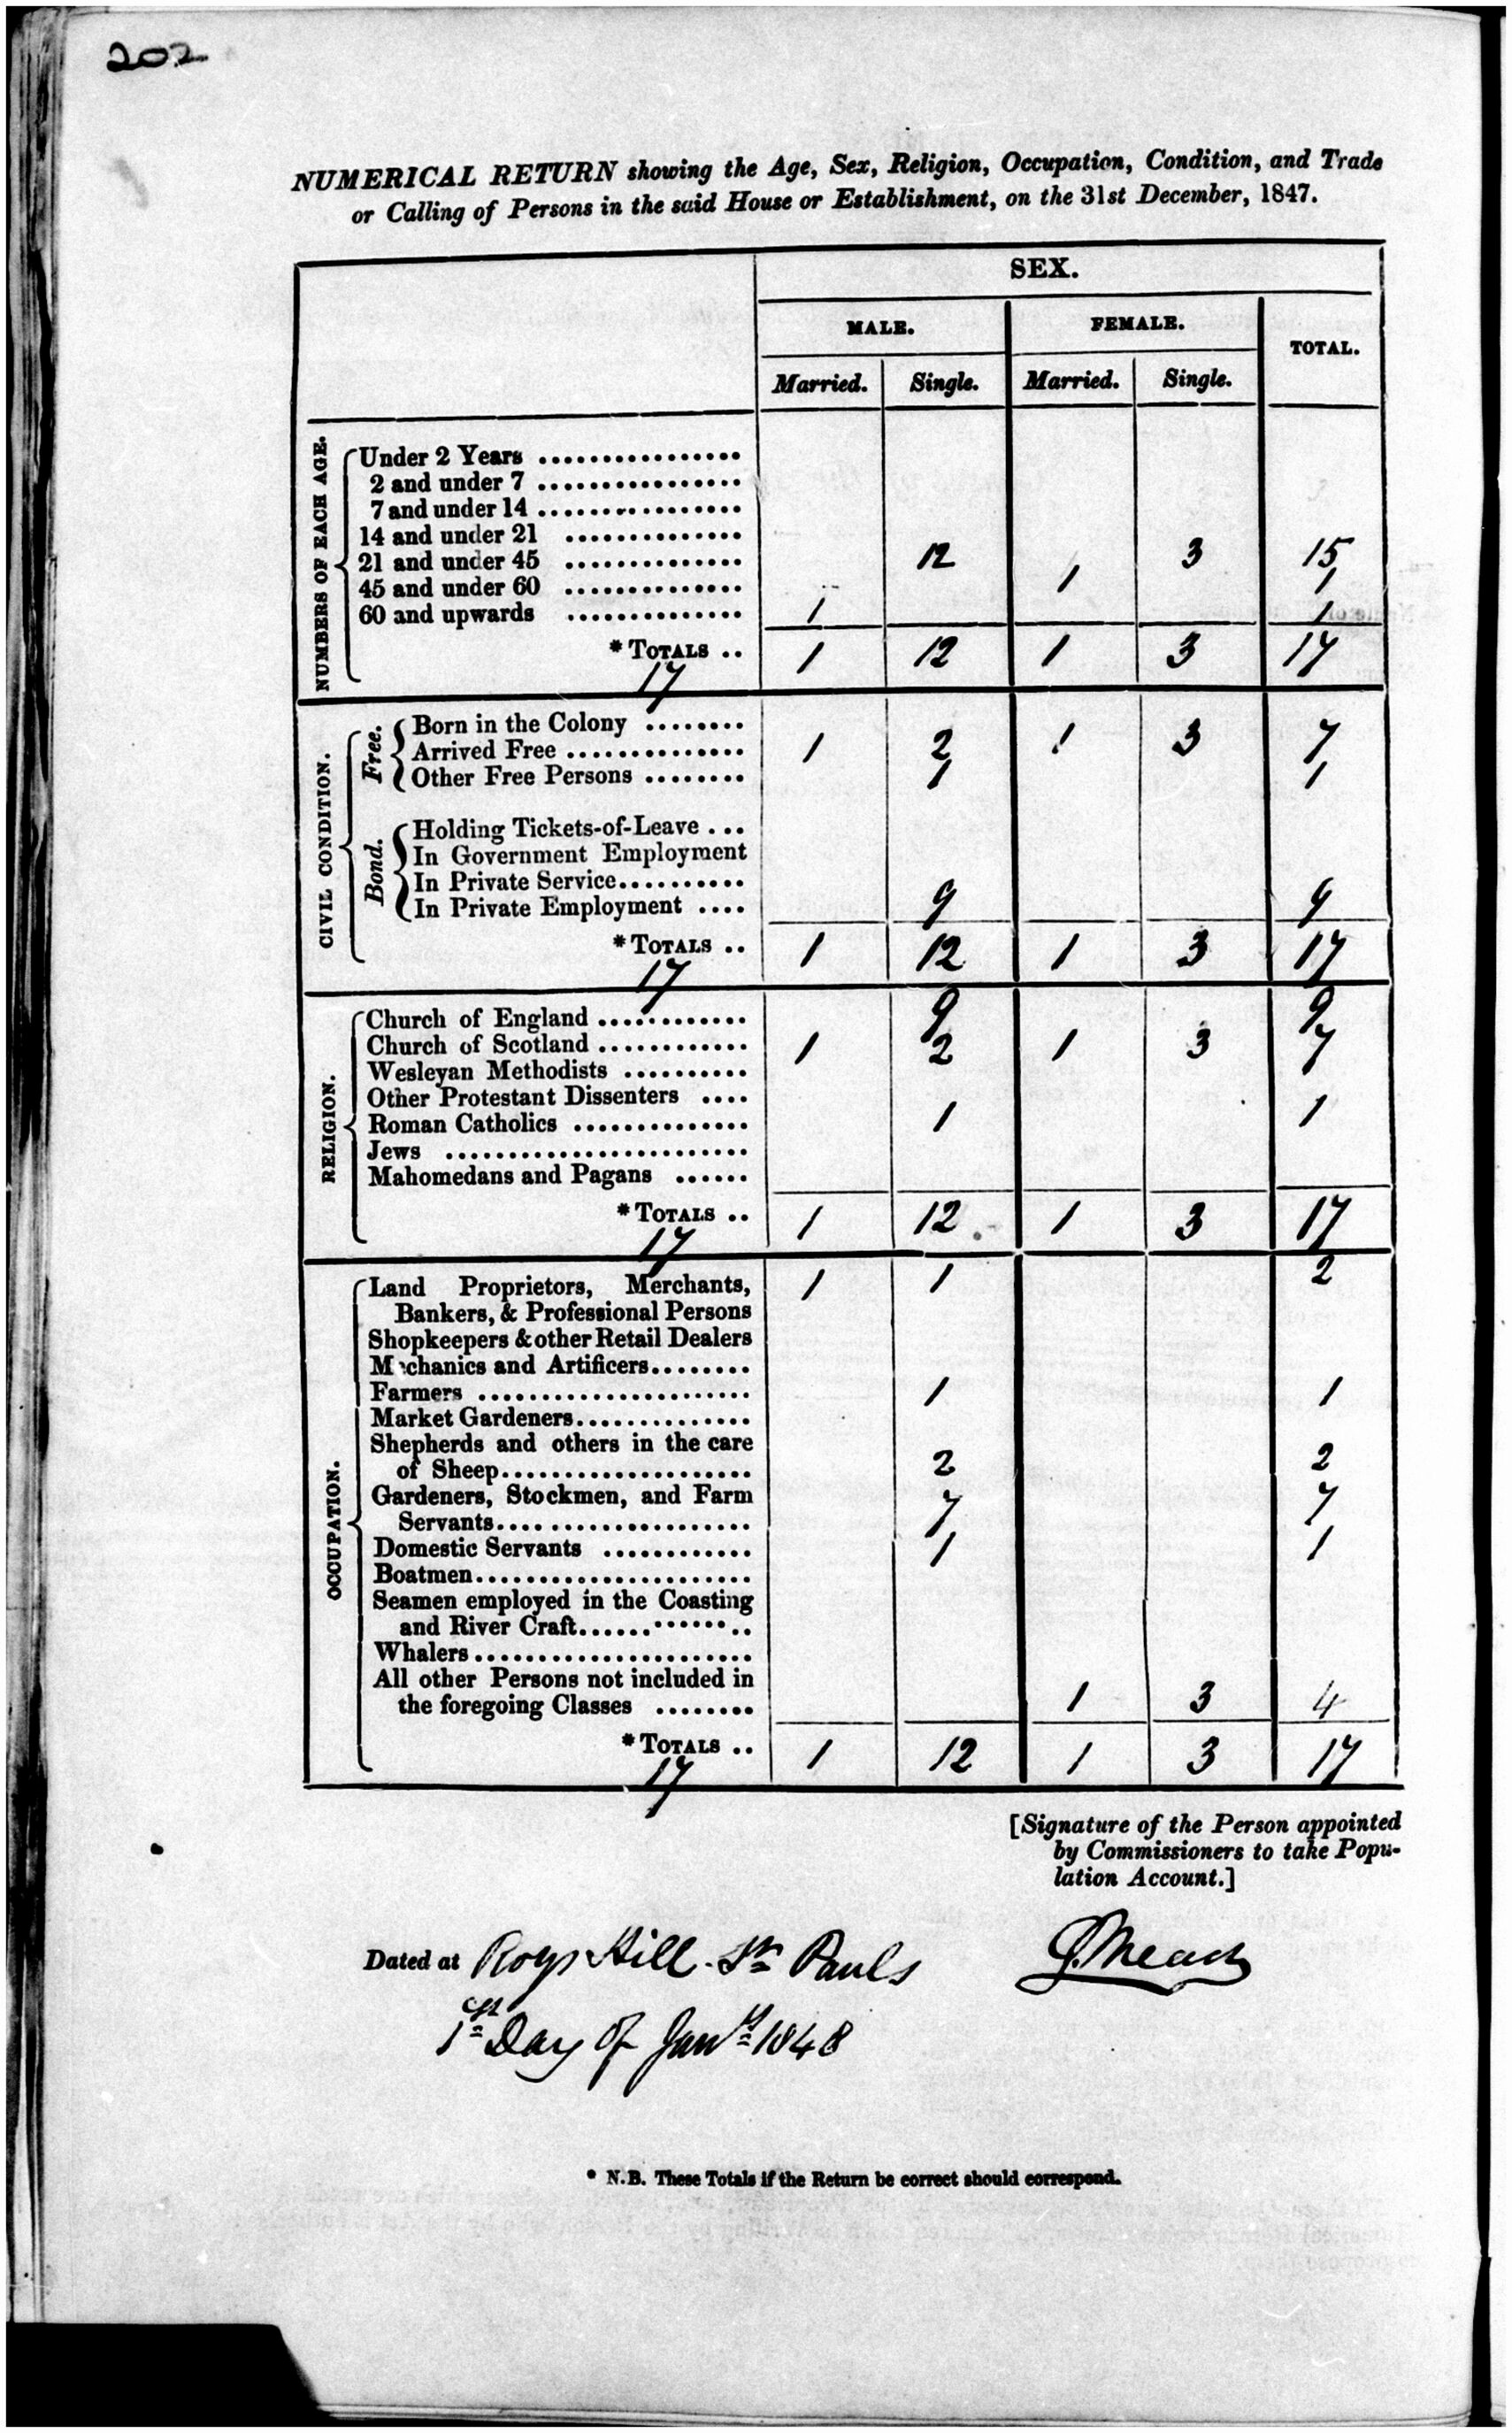 202
NUMERICAL RETURN showing the Age, Sex, Religion, Occupation, Condition, and Trade
or Calling of Persons in the said House or Establishment, on the 31st December, 1847.
SEX.
MALE. FEMALE. TOTAL.
Married. Single. Married. Single.
NUMBERS OF EACH AGE.
Under 2 Years ................
2 and under 7 ................
7 and under 14 ................
14 and under 21 ..............
21 and under 45 .............. 12 3 15
45 and under 60 .............. 1 1
60 and upwards .............. 1 1
*TOTALS .. 1 12 1 3 17
17
CIVIL CONDITION.
Free.
Born in the Colony ........
Arrived Free .............. 1 2 1 3 7
Other Free Persons ........ 1 1
Bond.
Holding Tickets-of-Leave ...
In Government Employment
In Private Service..........
In Private Employment .... 9 9
*TOTALS .. 1 12 1 3 17
17
RELIGION.
Church of England ............ 9 9
Church of Scotland ............ 1 2 1 3 7
Wesleyan Methodists ..........
Other Protestant Dissenters ....
Roman Catholics .............. 1 1
Jews ........................
Mahomedans and Pagans ......
*TOTALS .. 1 12 1 3 17
17
OCCUPATION.
Land Proprietors, Merchants, 1 1 2
Bankers, & Professional Persons
Shopkeepers & other Retail Dealers
Mechanics and Artificers........
Farmers ...................... 1 1
Market Gardeners..............
Shepherds and others in the care
of Sheep.................... 2 2
Gardeners, Stockmen, and Farm
Servants.................... 7 7
Domestic Servants ............ 1 1
Boatmen......................
Seamen employed in the Coasting
and River Craft..............
Whalers......................
All other Persons not included in
the foregoing Classes ........ 1 3 4
*TOTALS .. 1 12 1 3 17
17
[Signature of the Person appointed
by Commissioners to take Popu-
lation Account.]
Dated at Roys Hill. St Pauls
1st Day of Jany 1848
* N.B. These Totals if the Return be correct should correspond.